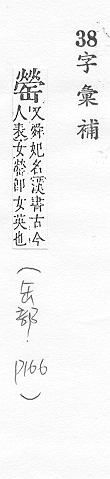 38字彙補
罃
又舜妃名漢書古今
人表女罃卽女英也
(缶部. p166)